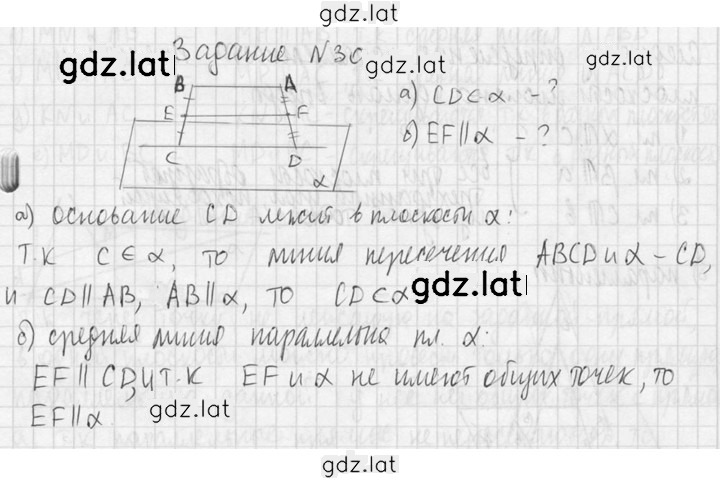 gdz.lat
Задание N 30
gdz.lat
gdz.lat
gdz.lat
B A
а) CD ⊂ α - ?
E F
б) EF || α - ?
C D
α
а) основание CD лежит в плоскости α:
Т.К C ∈ α, то линия пересечения ABCD и α – CD,
и CD || AB, AB || α, то CD ⊂ α
gdz.lat
б) средняя линия параллельна пл. α:
EF || CD, и т.к EF и α не имеют общих точек, то
EF || α
gdz.lat
gdz.lat